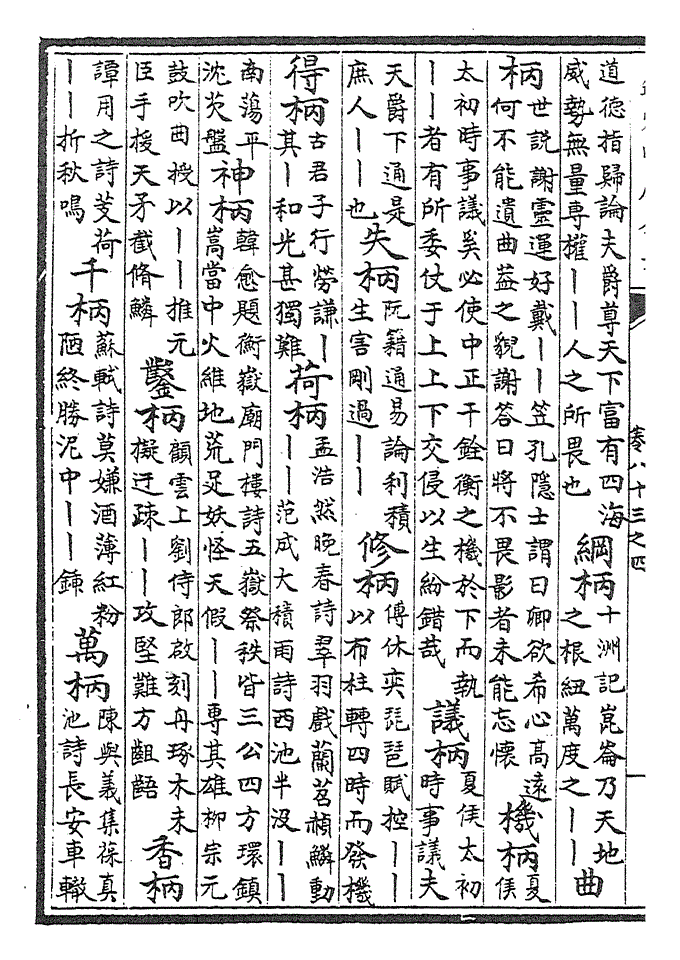 道德指歸論夫爵尊天下富有四海
威勢無量專權——人之所畏也
綱柄
十洲記崑崙乃天地
之根紐萬度之——
曲
柄
世説謝靈運好戴——笠孔隱士謂曰卿欲希心高遠
何不能遺曲葢之貌謝答曰將不畏影者未能忘懷
機柄
夏
侯
太初時事議奚必使中正干銓衡之機於下而執
——者有所委仗于上上下交侵以生紛錯哉
議柄
夏侯太初
時事議夫
天爵下通是
庶人——也
失柄
阮籍通易論利積
生害剛過——
修柄
傅休奕琵琶賦控——
以布柱轉四時而發機
得柄
古君子行勞謙—
其—和光甚獨難
荷柄
孟浩然晚春詩羣羽戲蘭苕頳鱗動
——范成大積雨詩西池半没——
南蕩平
沈芡盤
神柄
韓愈題衡嶽廟門樓詩五嶽祭秩皆三公四方環鎮
嵩當中火維地荒足妖怪天假——專其雄柳宗元
鼓吹曲授以——推元
臣手援天矛截脩鱗
鑿柄
顧雲上劉侍郎啟刻舟琢木未
擬迂疎——攻堅難方齟齬
香柄
譚用之詩芰荷
——折秋鳴
千柄
蘇軾詩莫嫌酒薄紅粉
陋終勝泥中——鍤
萬柄
陳與義集葆真
池詩長安車轍
卷八十三之四